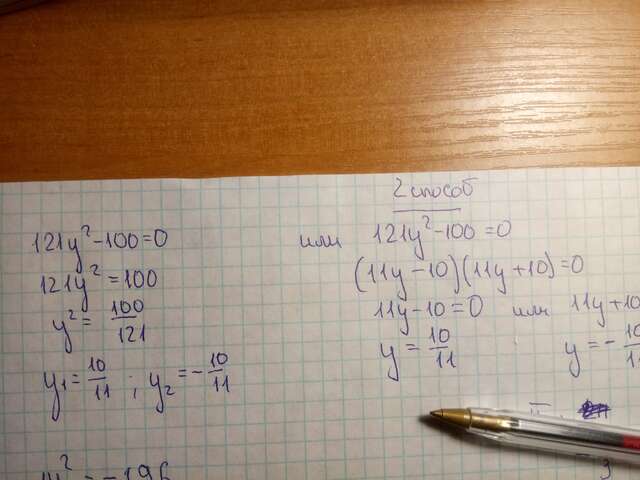 121y² - 100 = 0
121y² = 100
y² = 100/121
y₁ = 10/11 ; y₂ = - 10/11
2 способ
или 121y² - 100 = 0
(11y - 10)(11y + 10) = 0
11y - 10 = 0 или 11y + 10
y = 10/11 y = - 10/11
² = - 196
3